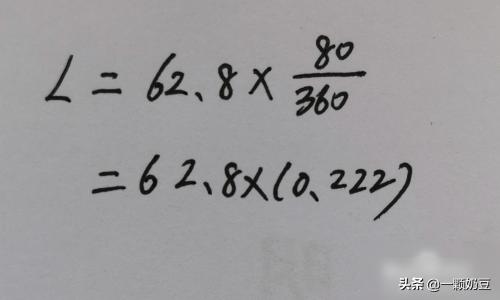 L = 62.8 × 80/360
= 62.8×(0.222)
头条 @一颗奶豆